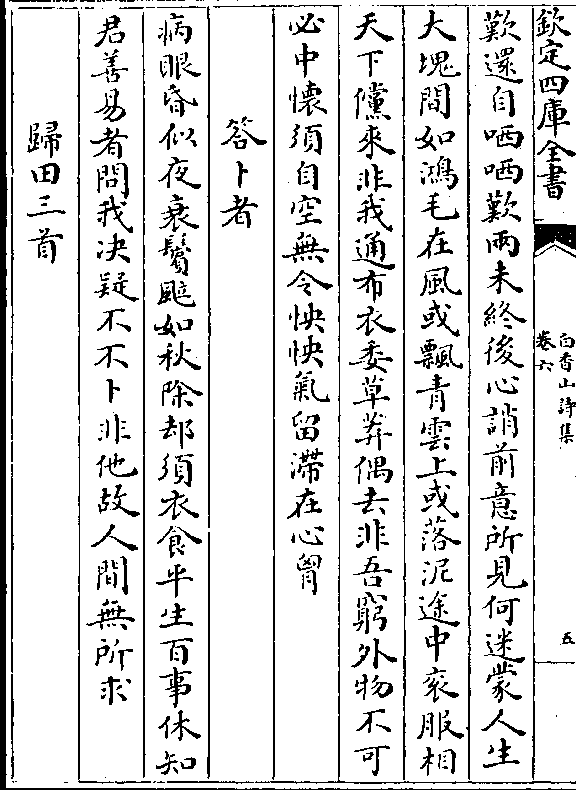 欽定四庫全書
白香山詩集
卷六
五
歎還自哂哂歎兩未終後心誚前意所見何迷蒙人生
大塊間如鴻毛在風或飄青雲上或落泥途中衮服相
天下儻來非我通布衣委草莽偶去非吾窮外物不可
必中懷須自空無令怏怏氣留滯在心胷
答卜者
病眼昏似夜衰鬢颯如秋除却須衣食平生百事休知
君善易者問我決疑不不卜非他故人間無所求
歸田三首